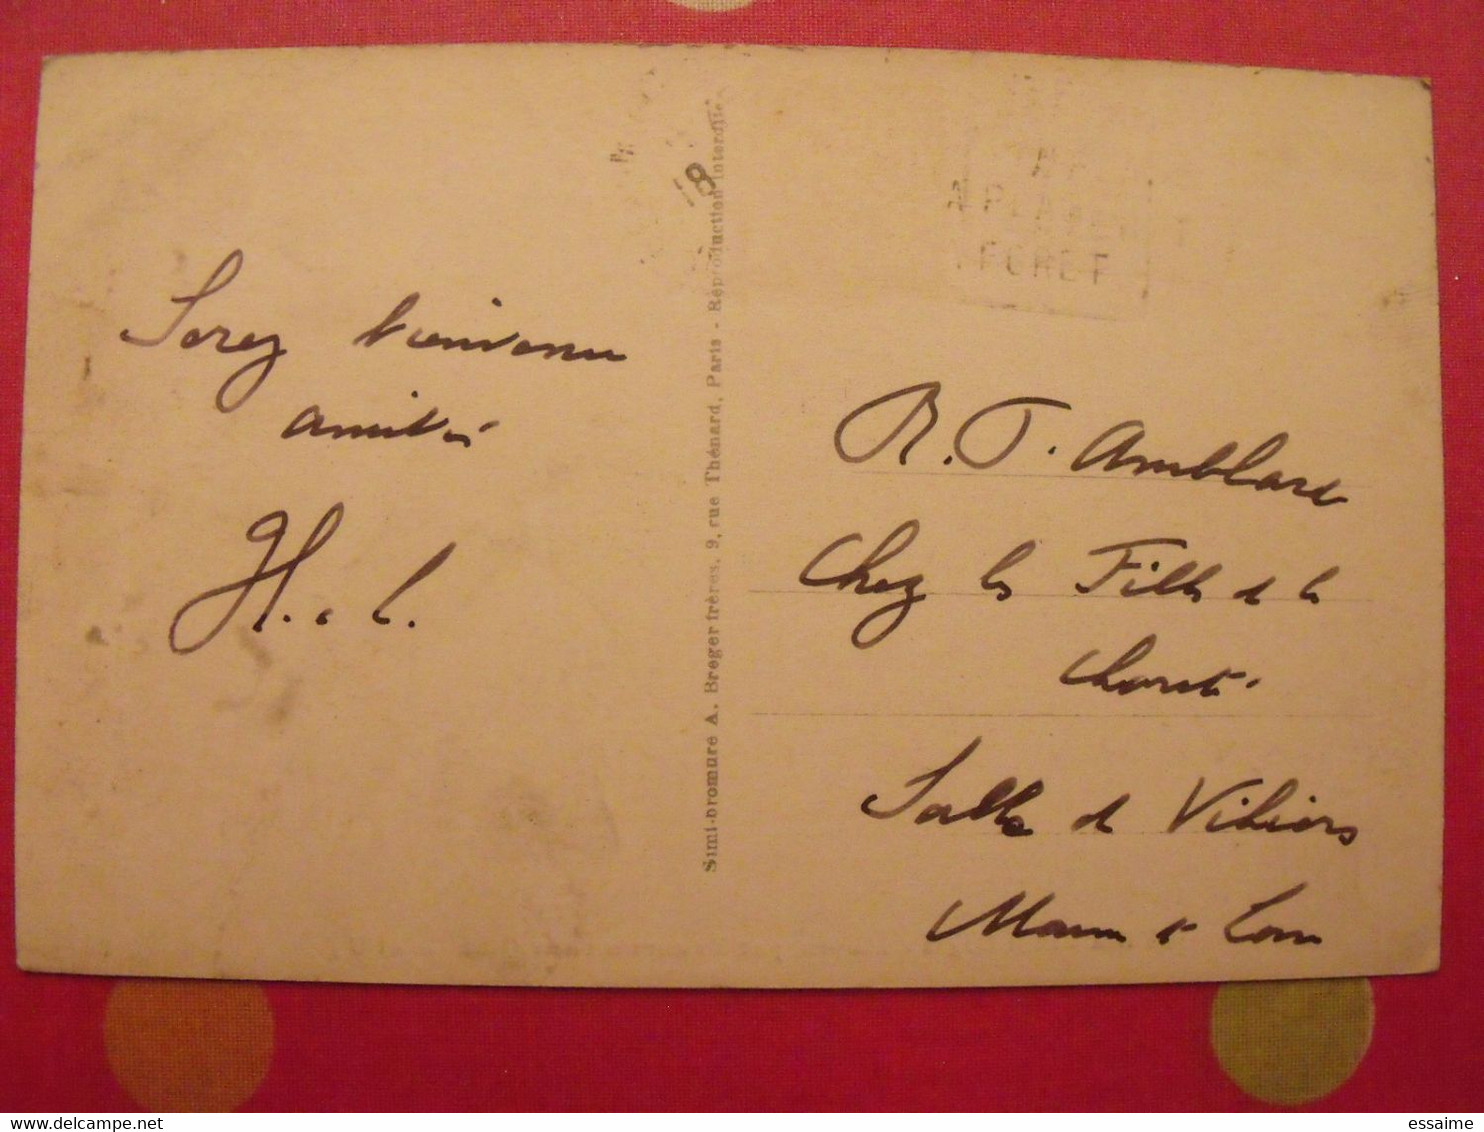 Serez bienvenu
amitiés
H. L.
Simi-bromure A. Breger frères, 9, rue Thénard, Paris - Reproduction interdite
18
FORET
R. T. Amblard
Chez les Filles de la
Charité
Salle de Vihiers
Maine et Loire
essaime
delcampe.net